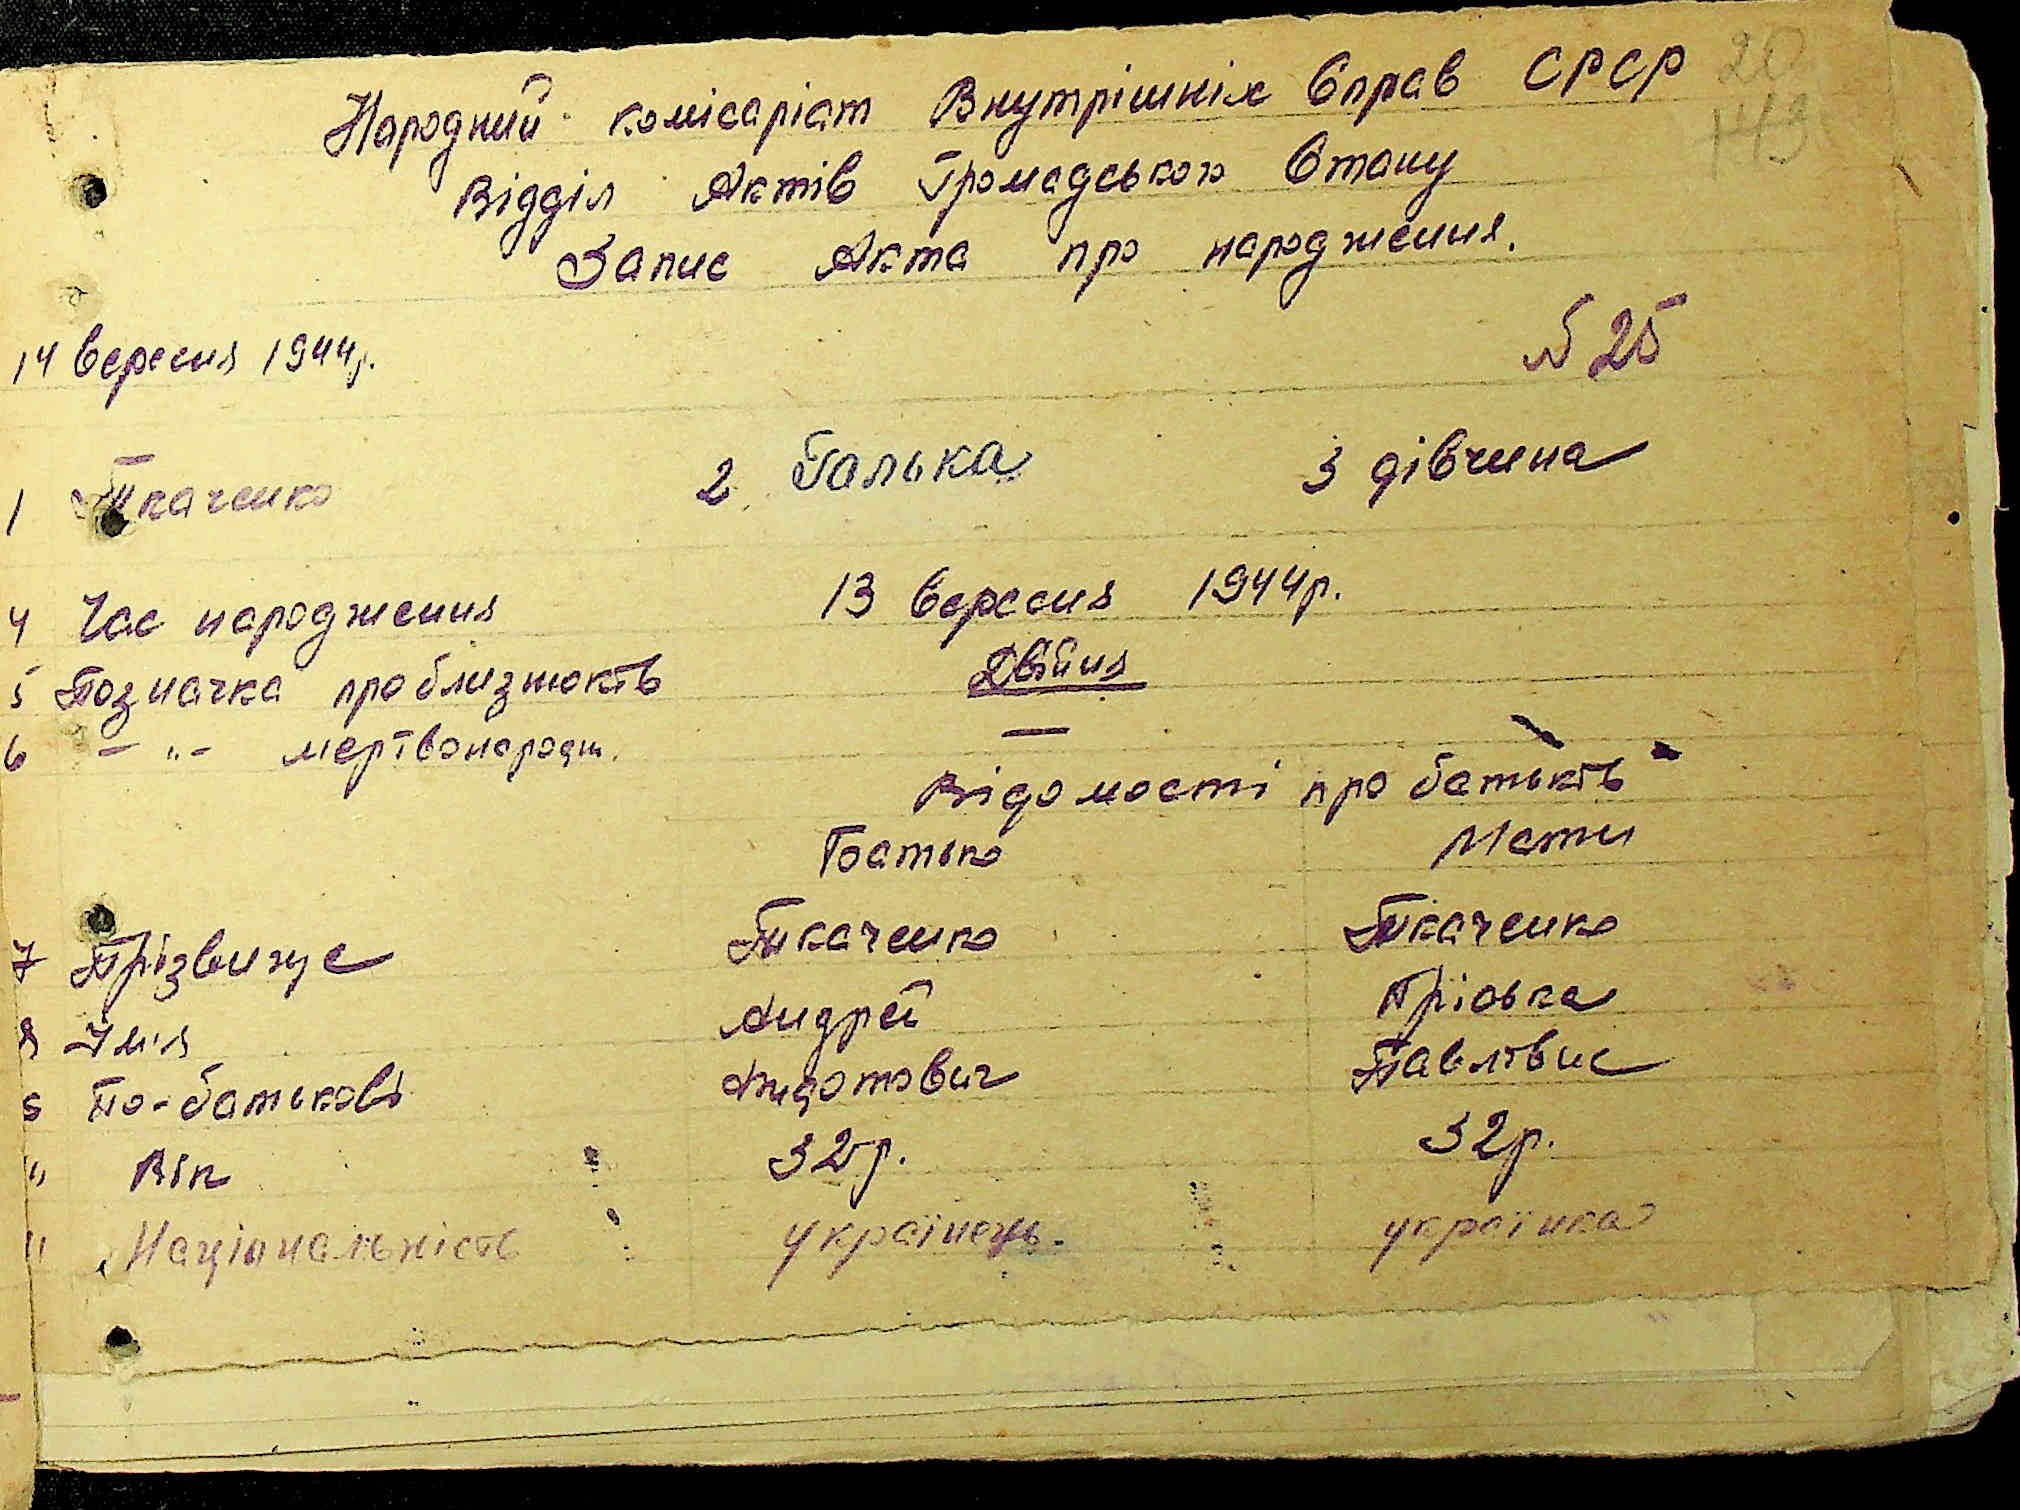 20
143
Народний комісаріат Внутрішніх Справ СРСР
Відділ Актів Громадського Стану
Запис Акта про народження.
14 вересня 1944р. № 25
1 Ткаченко 2 Галька 3 дівчина
4 Час народження 13 вересня 1944р.
5 Позначка про близнюків Двійня
6 — "— мертвонародж. —
Відомості про батьків
Батько Мати
7 Прізвище Ткаченко Ткаченко
8 Ім'я Андрей
9 По-батькові Павлівна
" Вік 32р. 32р.
" Національність українець. українка